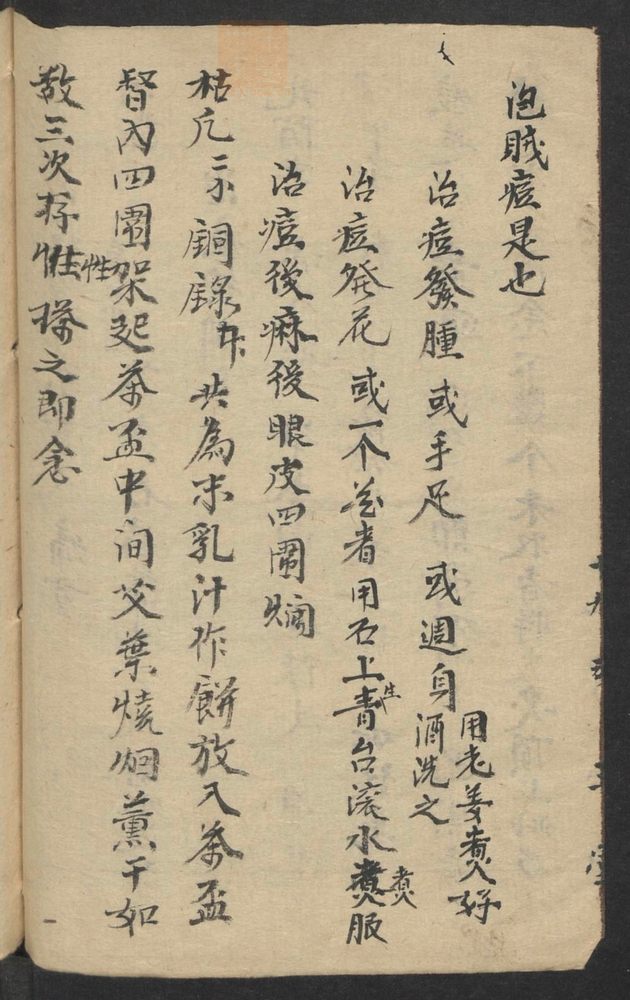 泡賊痘是也
治痘發腫或手足 或週身用老姜煑好酒洗之
治痘發花或一个花者用石上生青台滚水煑煑服
治痘後痳後眼皮四圍爛
枯凡二分 銅録 共為末乳汁作餅放入茶盃
督內四圍架起茶盃中間艾葉燒烟薰干如
教三次存性性 搽之即念